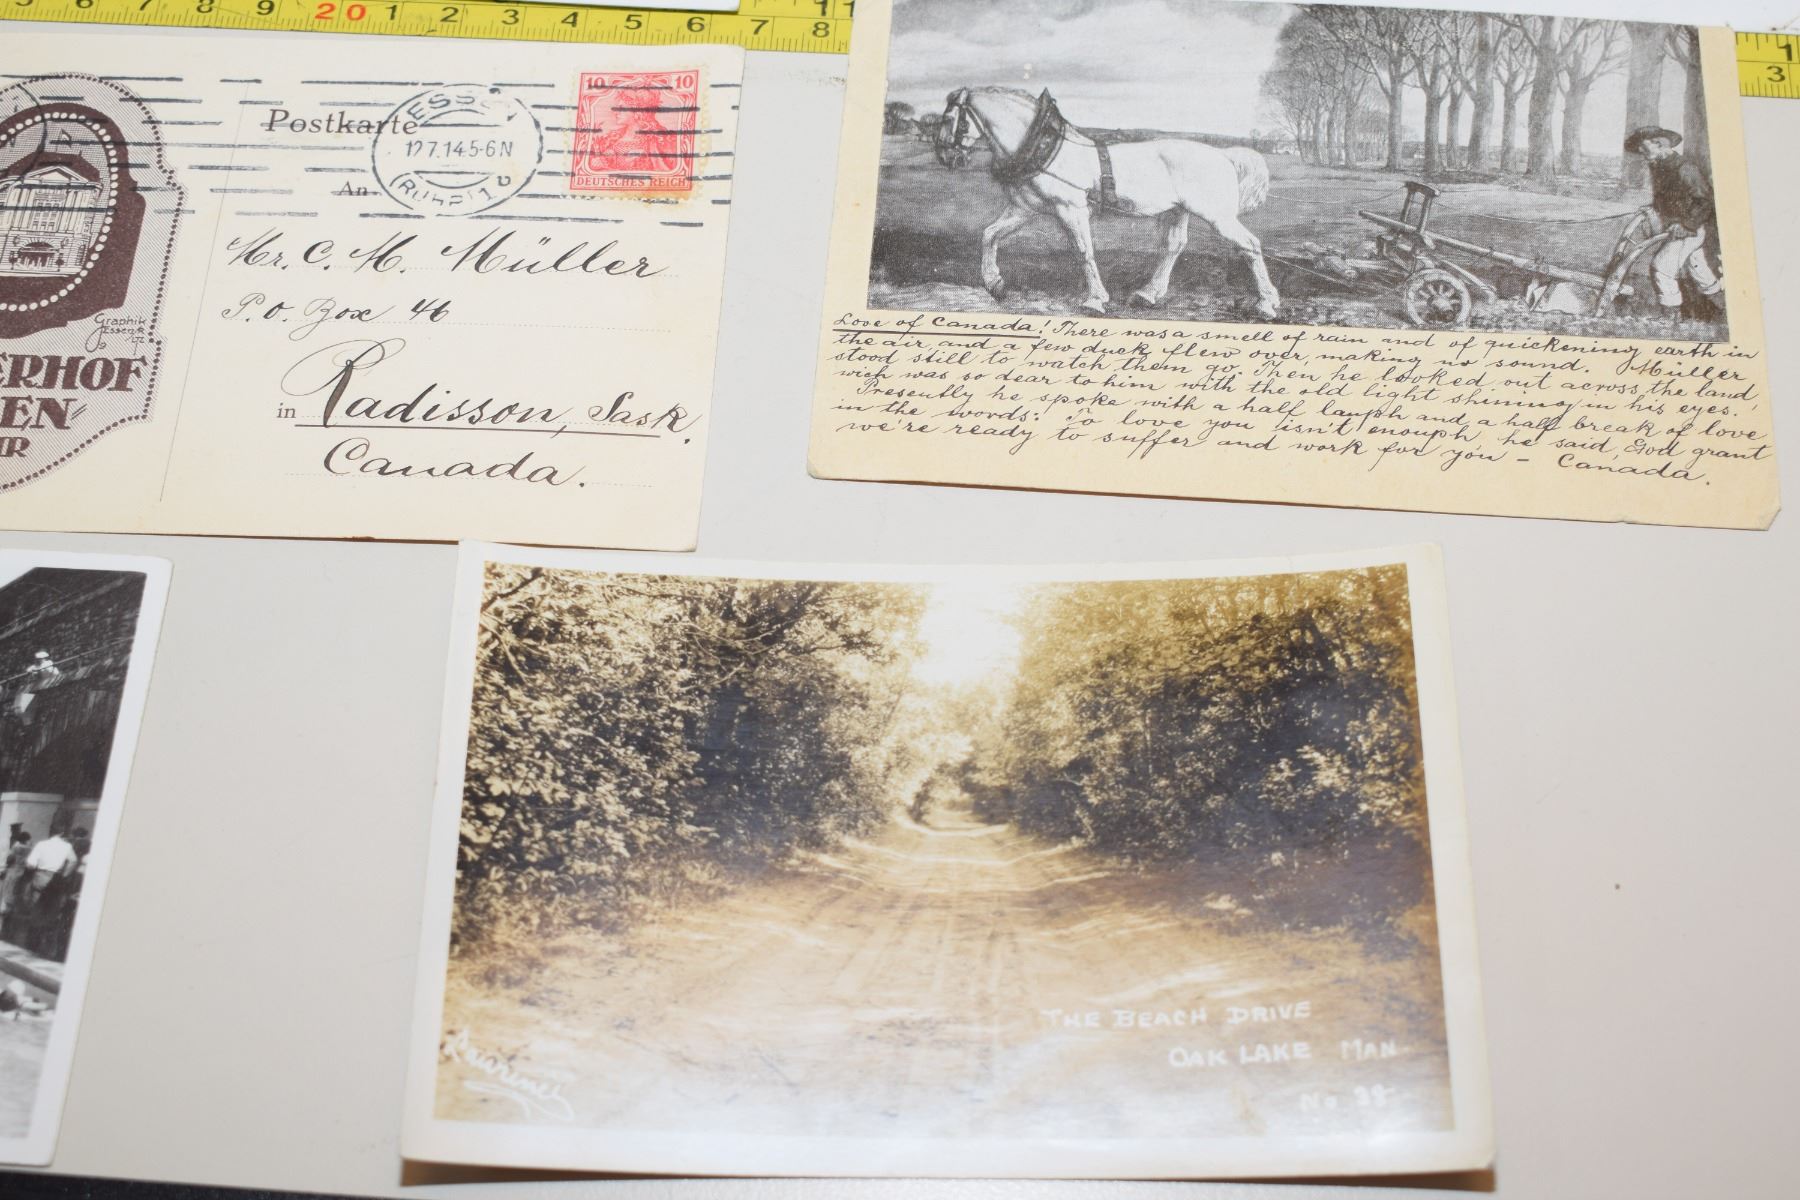 7 8 9 20 1 2 3 4 5 6 7 8
Postkarte
10 10
DEUTSCHES REICH
12.7.14.5-6N
(RUHR) 1
An
Mr. C. M. Müller
P. O. Box 46
in Radisson, Sask.
Canada.
Graphik
ERHOF
EN
Love of Canada! There was a smell of rain and of quickening earth in
the air, and a few duck flew over, making no sound. Müller
stood still to watch them go. Then he looked out across the land,
wich was so dear to him with the old light shining in his eyes.
Presently he spoke with a half laugh and a half break of love
in the words: To love you isn't enough, he said, God grant
we're ready to suffer and work for you - Canada.
THE BEACH DRIVE
OAK LAKE MAN
No 38